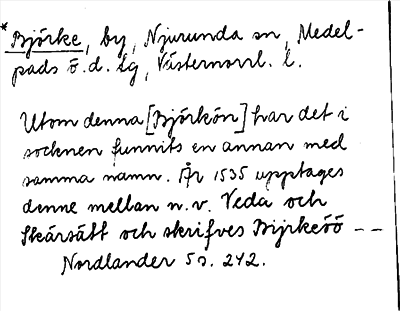 * Björke, by, Njurunda sn, Medel-
pads ö. d. lg, Västernorrl. l.
Utom denna [Björkön] har det i
socknen funnits en annan med
samma namn. År 1535 upptages
denne mellan n. v. Veda och
Skärsätt och skrifves Bijrkeöö --
Nordlander 5 s. 242.